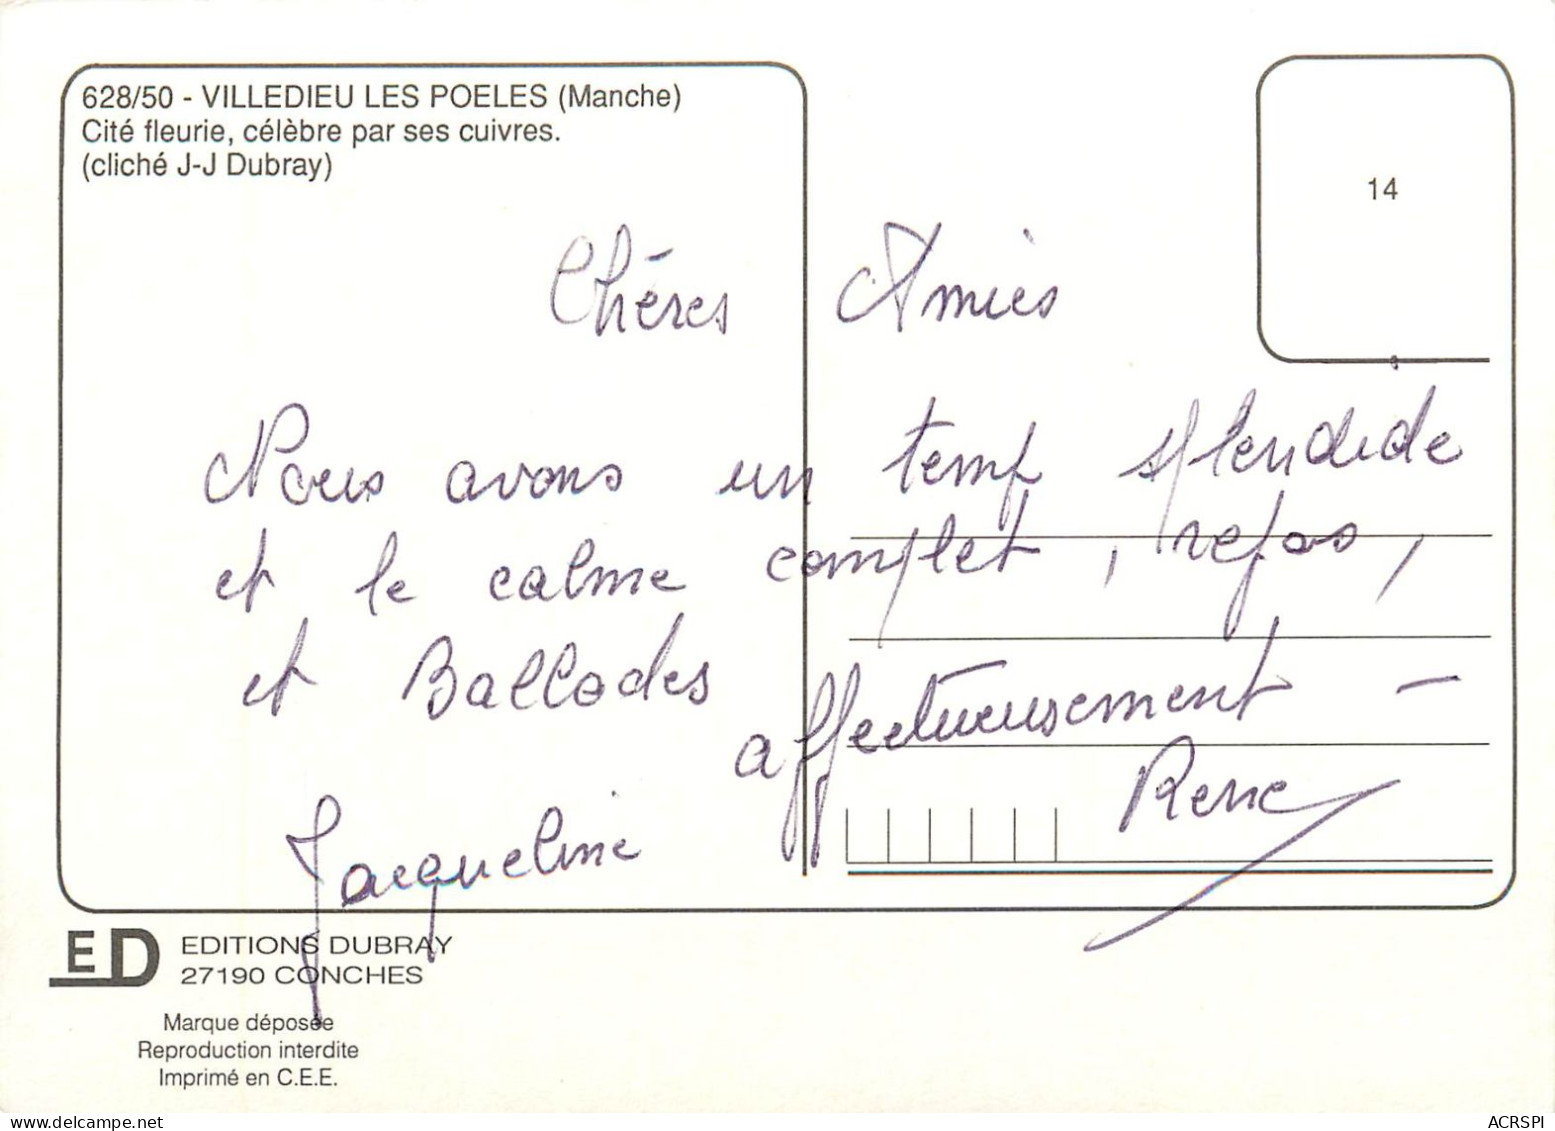 628/50 - VILLEDIEU LES POELES (Manche)
Cité fleurie, célèbre par ses cuivres.
(cliché J-J Dubray)
14
Chéres Amies
Nous avons un temp splendide
et le calme complet, repos,
et Ballades
affectueusement -
Jacqueline Rene
ED EDITIONS DUBRAY
27190 CONCHES
Marque déposée
Reproduction interdite
Imprimé en C.E.E.
www.delcampe.net
ACRSPI